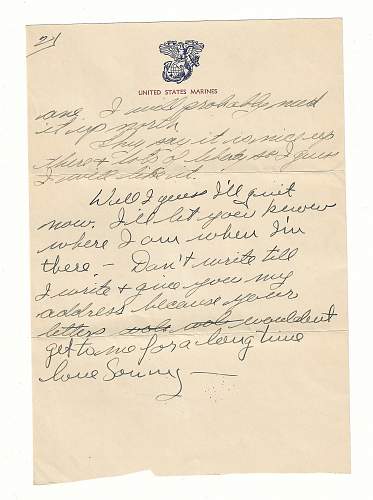 2/
UNITED STATES MARINES
one I will probably need
it up north
They say it is nice up
there + lots of liberty so I guess
I will like it.
Well I guess I'll quit
now. I'll let you know
where I am when I'm
there – Don't write till
I write + give you my
address because your
letters wouldn't
get to me for a long time
love Sonny —